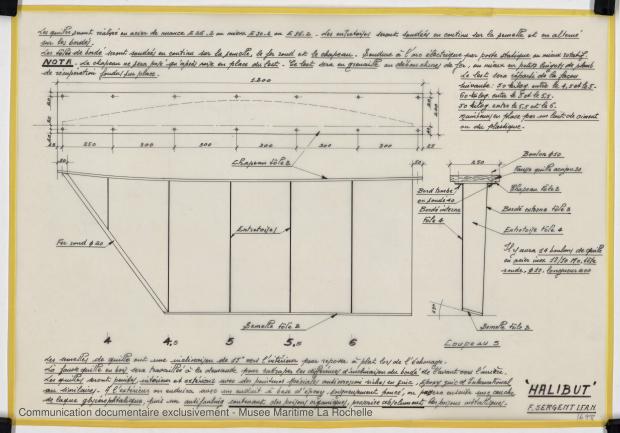 Les quilles seront réalisé en acier de nuance E 26.2 ou mieux E 30.2 ou E 36.2. Les entretoises seront soudées en continu sur la semelle et en alterné
sur les bordés.
Les tôles de bordé seront soudées en continu sur la semelle, le fer rond et le chapeau. Soudure à l'arc électrique par poste statique ou mieux rotatif.
NOTA. Le chapeau ne sera posé qu'après mise en place du lest. Le lest sera en grenaille ou débouchures de fer, ou mieux en petits lingots de plomb
de récupération fondus sur place.
Le lest sera réparti de la façon
suivante: 50 kilog. entre le 4,5 et le 5.
60 kilog. entre le 5 et le 5.5.
50 kilog. entre le 5.5 et le 6.
maintenu en place par un lait de ciment
ou du plastique.
1200
250 200 200 200 200
25
50
Chapeau tôle 2
50
Fer rond ϕ 20
Entretoises
Semelle tôle 2
4 4.5 5 5.5 6
250
Boulon ϕ 10
Fausse quille acajou 20
Chapeau tôle 2
Bord tombé
Bordé interne
tôle 4
Bordé externe tôle 3
Entretoise tôle 4
Il y aura 14 boulons de quille
en acier inox 18/10 Mo, tête
ronde, ϕ 10. longueur 200
15°
Semelle tôle 2
Coupe au 5
Les semelles de quille ont une inclinaison de 15° vers l'intérieur pour reposer à plat lors de l'échouage.
La fausse quille en bois sera travaillée à la demande pour rattraper les différences d'inclinaison du bordé de l'avant vers l'arrière.
Les quilles seront peintes, intérieur et extérieur avec des peintures spéciales anticorrosion riches en zinc, Epoxy zinc d'International
ou similaires. A l'extérieur on enduira avec un enduit à base d'époxy, soigneusement poncé, on passera ensuite une couche
de laque glycérophtalique, puis un antifouling contenant des poisons organiques, proscrire absolument des poisons métalliques.
"HALIBUT"
F. SERGENT I.F.A.N.
Communication documentaire exclusivement - Musee Maritime La Rochelle